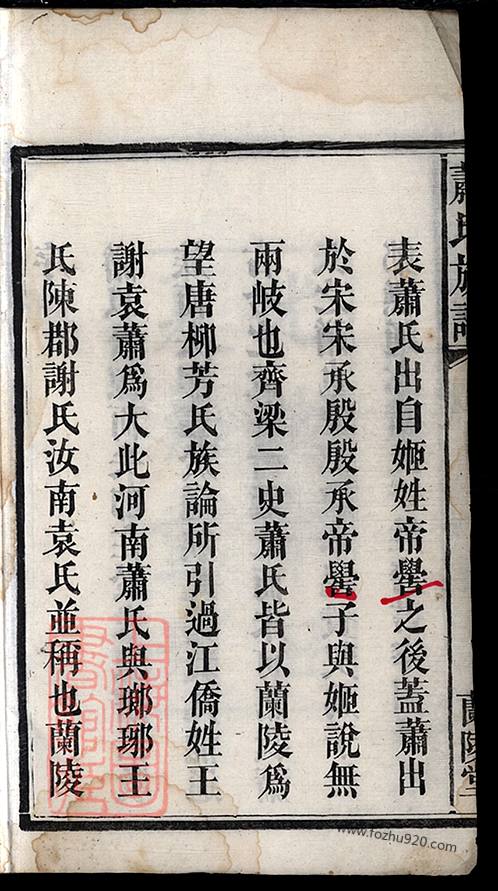 蕭氏族譜
蘭陵堂
表蕭氏出自姬姓帝嚳之後蓋蕭出
於宋宋承殷殷承帝嚳子與姬說無
兩岐也齊梁二史蕭氏皆以蘭陵爲
望唐柳芳氏族論所引過江僑姓王
謝袁蕭爲大此河南蕭氏與瑯琊王
氏陳郡謝氏汝南袁氏並稱也蘭陵
www.fozhu920.com